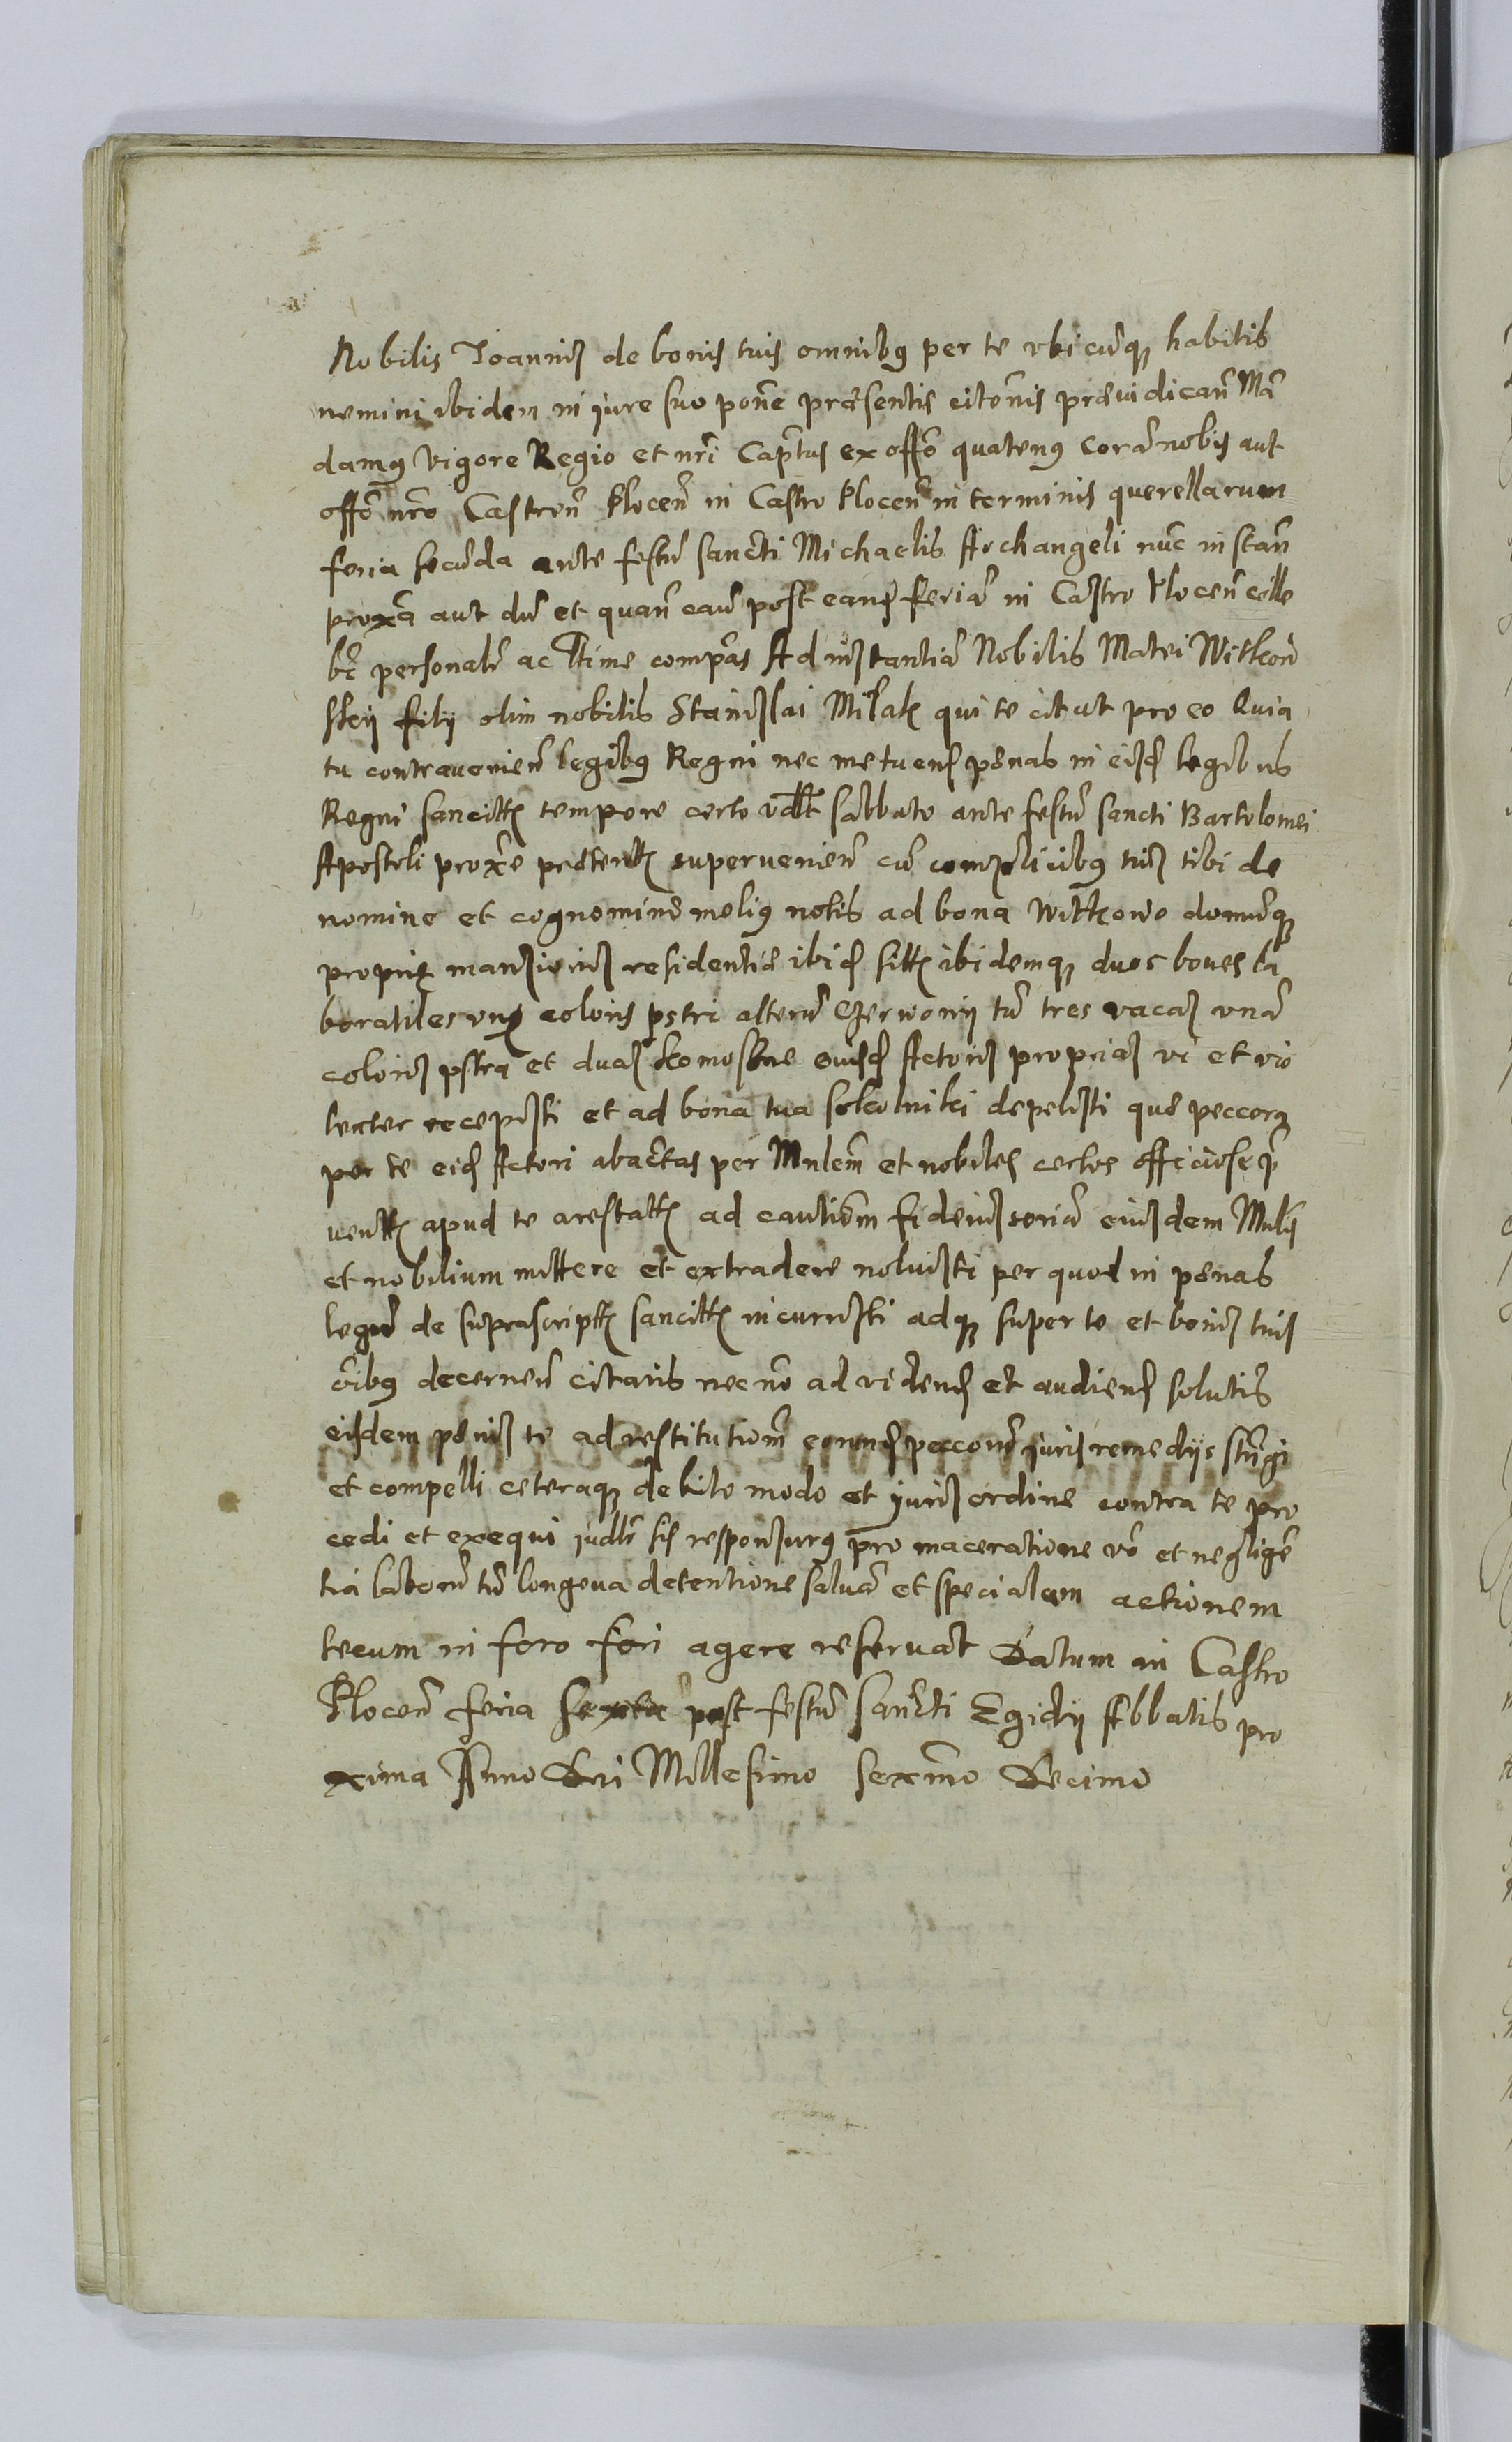 Nobilis Joannis de bonis tuis omnibus per te ubicumq habitis
nemini ibidem in jure suo pone præsentis citonis præiudican Man
damus vigore Regio et nri Captus ex offo quatenus coram nobis aut
offo nro Castren Plocen in Castro Plocen in terminis querellarum
feria secunda ante festum sancti Michaelis Archangeli nunc instan
proxa aut dum et quan cau post eand feriam in Castro Plocen cele
br personalr ac ttime compas Ad instantiam Nobilis Matei Witkow
skij filij olim nobilis Stanislai Milak qui te citat pro eo Quia
tu contravenien legibus Regni nec metuens penas in eisd legibus
Regni sancitt tempore certo vdlt sabbato ante festum sancti Bartolomei
Apostoli proxe preteritt supervenien cum complicibus tuis tibi de
nomine et cognomine melius notis ad bona Witkowo domumq
propriæ mansionis residentiæ ibid sitt ibidemq duos boues la
boratiles unum coloris pstri alterum Czerwony tum tres vacas unam
coloris pstra et duas komoszne eiusd Actoris proprias vi et vio
lenter recepisti et ad bona tua sokolniki depelisti que peccora
per te eid Actori abactas per Mnlem et nobiles certos officiose p
ventt apud te arestatt ad cautiom fideiussoriam eiusdem Mnlis
et nobilium mittere et extradere noluisti per quod in penas
legum de suprascriptt sancitt incurristi adq super te et bonis tuis
oibus decernen citaris necno ad vidend et audiend solutis
eisdem penis te ad restitutiom eorund peccorum juris remedijs stringi
et compelli ceteraq debito modo et juris ordine contra te pro
cedi et exequi judlr sis responsurus pro maceratione vo et negligen
tia laborum tum longeva detentione salvam et specialem actionem
tecum in foro fori agere reservat Datum in Castro
Plocen feria sexta post festum sancti Egidij Abbatis pro
xima Anno Dni Millesimo sexmo Decimo